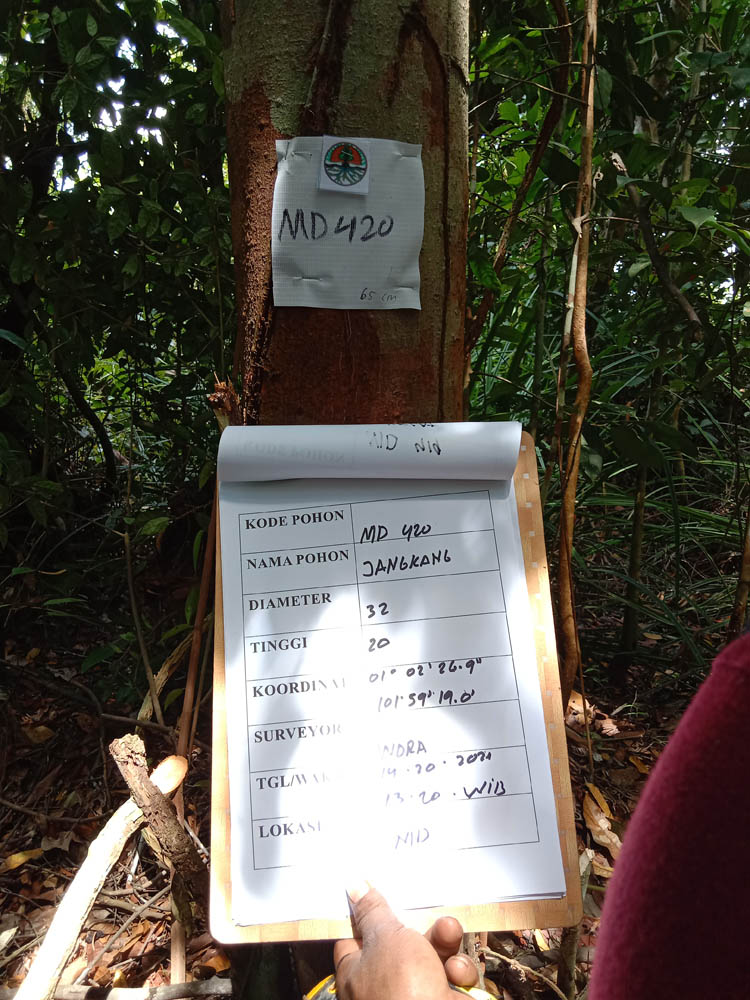 MD 420
65 cm
KODE POHON MD 420
NAMA POHON JANGKANG
DIAMETER 32
TINGGI 20
KOORDINA 01° 02' 26.9"
101° 59' 19.0'
SURVEYOR NDRA
TGL/WAK 14.20.2021
13.20. WIB
LOKASI